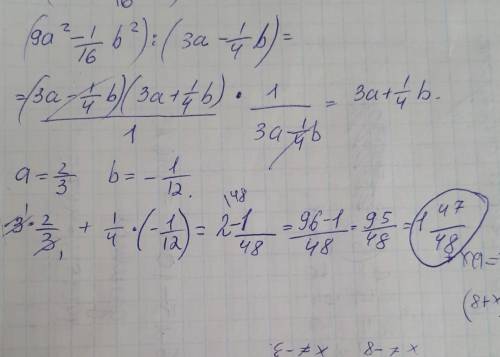 (9a² - 1/16 b²) : (3a - 1/4 b) =
= (3a - 1/4 b)(3a + 1/4 b)/1 · 1/(3a - 1/4 b) = 3a + 1/4 b.
a = 2/3 b = - 1/12.
3¹ · 2/3₁ + 1/4 · (- 1/12) = 2\⁴⁸ - 1/48 = (96-1)/48 = 95/48 = 1 47/48
(8+x
x ≠ -8 x ≠ -3